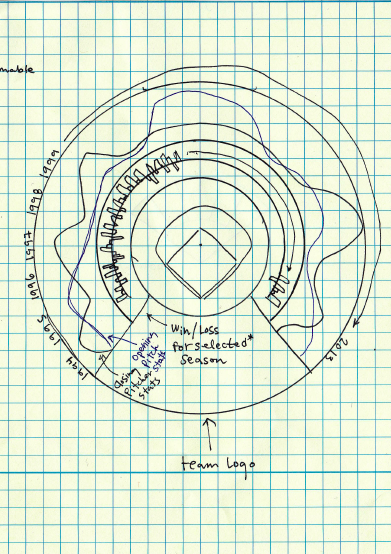 mable
1999
1998
1997
1996
1995
1994
2013
Win/Loss
for selected*
season
Opening
Pitch
Stats
Closing
Pitcher
Stats
team Logo